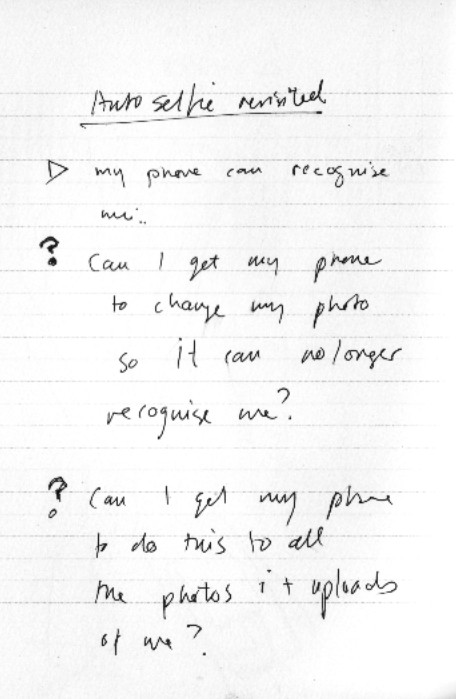 Auto selfie revisited
▷ my phone can recognise
me..
? Can I get my phone
to change my photo
so it can no longer
recognise me?
? Can I get my phone
to do this to all
the photos it uploads
of me?